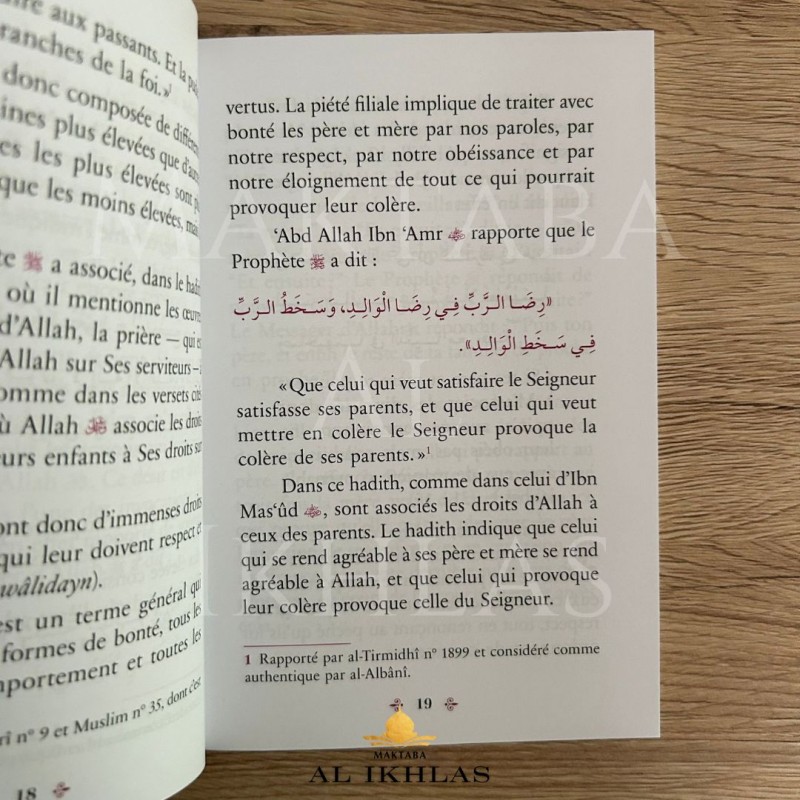 aux passants. Et la
ranches de la foi.»
donc composée de
plus élevées que
les plus élevées sont
que les moins élevées,
ﷺ a associé, dans le
où il mentionne les
d'Allah, la prière – qui
Allah sur Ses serviteurs –
comme dans les versets
Allah associe les droits
enfants à Ses droits sur
ont donc d'immenses droits
qui leur doivent respect et
wâlidayn).
est un terme général qui
formes de bonté, tous les
et toutes les
n° 9 et Muslim n° 35, dont
18
vertus. La piété filiale implique de traiter avec
bonté les père et mère par nos paroles, par
notre respect, par notre obéissance et par
notre éloignement de tout ce qui pourrait
provoquer leur colère.
‘Abd Allah Ibn ‘Amr rapporte que le
Prophète ﷺ a dit :
«رِضَا الرَّبِّ فِي رِضَا الْوَالِدِ، وَسَخَطُ الرَّبِّ
فِي سَخَطِ الْوَالِدِ».
«Que celui qui veut satisfaire le Seigneur
satisfasse ses parents, et que celui qui veut
mettre en colère le Seigneur provoque la
colère de ses parents.»¹
Dans ce hadith, comme dans celui d'Ibn
Mas‘ûd , sont associés les droits d'Allah à
ceux des parents. Le hadith indique que celui
qui se rend agréable à ses père et mère se rend
agréable à Allah, et que celui qui provoque
leur colère provoque celle du Seigneur.
1 Rapporté par al-Tirmidhî n° 1899 et considéré comme
authentique par al-Albânî.
19
MAKTABA
AL IKHLAS
MAKTABA
AL
IKHLAS